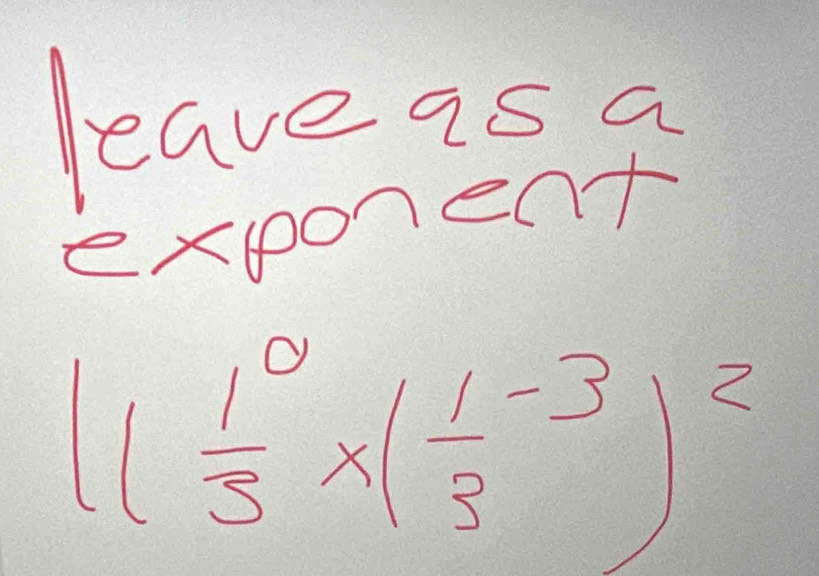 leave as a
exponent
((1/3^0 × (1/3^-3)^2